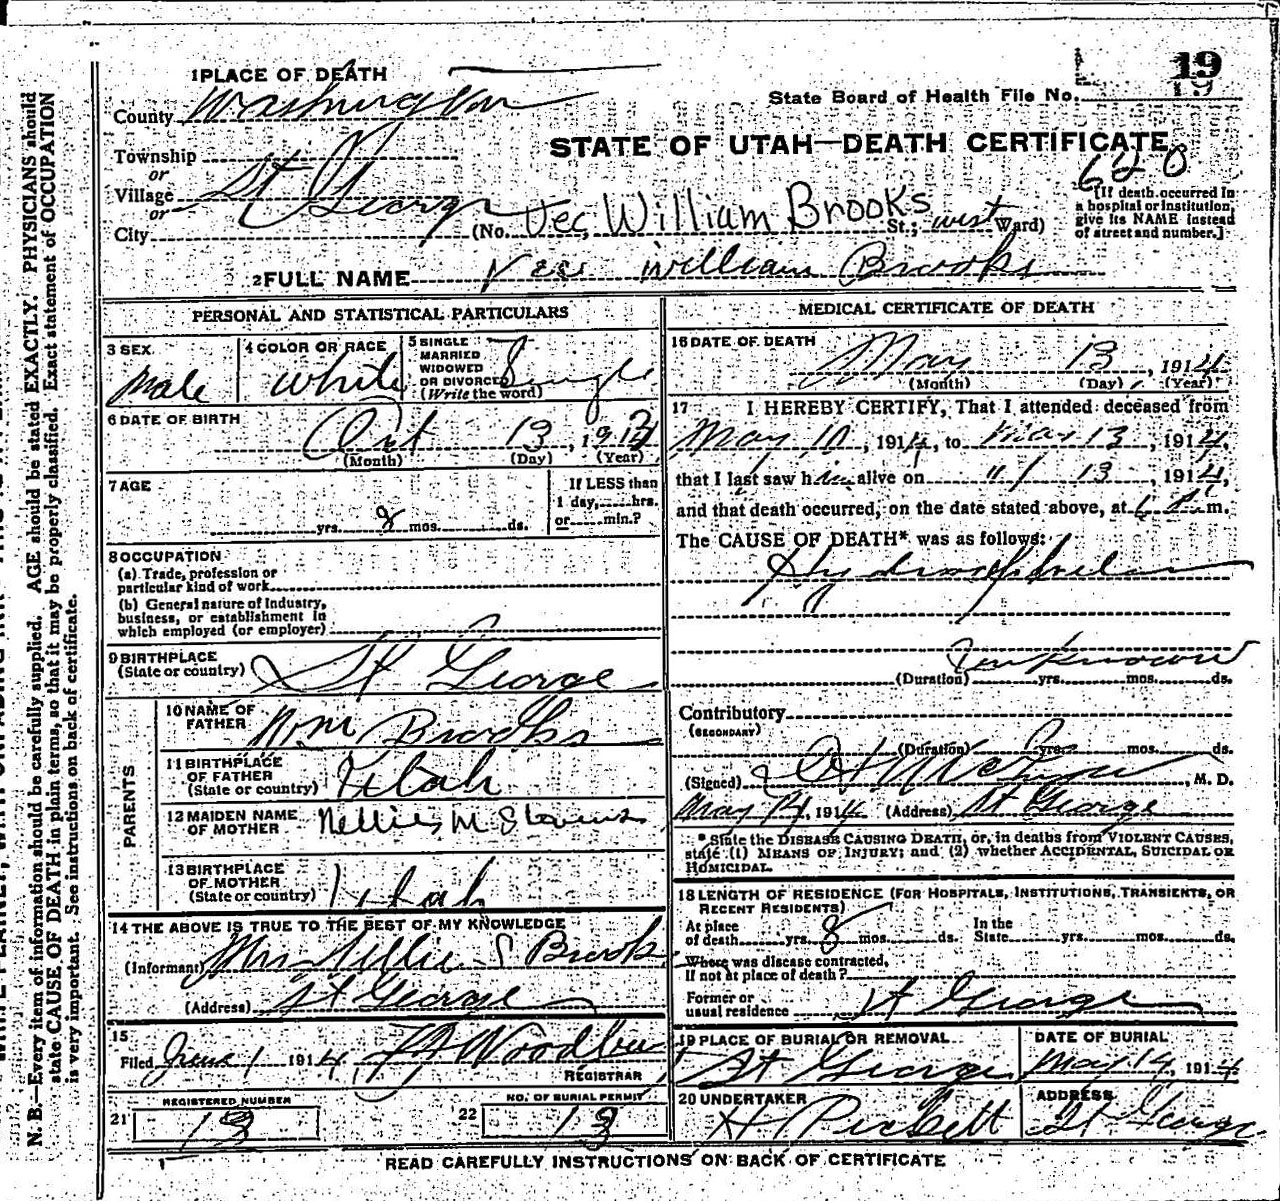 19
19
1 PLACE OF DEATH
State Board of Health File No.
County Washington
STATE OF UTAH—DEATH CERTIFICATE
Township
or
Village St George
or
City
628
[If death occurred in
a hospital or institution,
give its NAME instead
of street and number.]
(No. Vee William Brooks St.; west Ward)
2 FULL NAME Vee William Brooks
PERSONAL AND STATISTICAL PARTICULARS
3 SEX
Male
4 COLOR OR RACE
White
5 SINGLE
MARRIED
WIDOWED
OR DIVORCED
(Write the word)
Single
6 DATE OF BIRTH
Oct 13, 1913
(Month) (Day) (Year)
7 AGE
yrs. 8 mos. ds.
If LESS than
1 day, hrs.
or min.?
8 OCCUPATION
(a) Trade, profession or
particular kind of work
(b) General nature of Industry,
business, or establishment in
which employed (or employer)
9 BIRTHPLACE
(State or country) St George
PARENTS
10 NAME OF
FATHER Wm Brooks
11 BIRTHPLACE
OF FATHER
(State or country) Utah
12 MAIDEN NAME
OF MOTHER Nellie M Stevens
13 BIRTHPLACE
OF MOTHER
(State or country) Utah
14 THE ABOVE IS TRUE TO THE BEST OF MY KNOWLEDGE
(Informant) Mrs Nellie S Brooks
(Address) St George
15
Filed June 1 1914 Woodbury
REGISTRAR
REGISTERED NUMBER
21 13
NO. OF BURIAL PERMIT
22 13
MEDICAL CERTIFICATE OF DEATH
16 DATE OF DEATH
May 13, 1914
(Month) (Day) (Year)
17 I HEREBY CERTIFY, That I attended deceased from
May 10, 1914, to May 13, 1914,
that I last saw him alive on " 13, 1914,
and that death occurred, on the date stated above, at 6 A m.
The CAUSE OF DEATH* was as follows:
Hydrocephalus
Unknown
(Duration) yrs. mos. ds.
Contributory
(SECONDARY)
(Duration) yrs. mos. ds.
(Signed) M. D.
May 14, 1914 (Address) St George
* State the DISEASE CAUSING DEATH, or, in deaths from VIOLENT CAUSES,
state (1) MEANS OF INJURY; and (2) whether ACCIDENTAL, SUICIDAL OR
HOMICIDAL.
18 LENGTH OF RESIDENCE (FOR HOSPITALS, INSTITUTIONS, TRANSIENTS, OR
RECENT RESIDENTS)
At place
of death yrs. 8 mos. ds.
In the
State yrs. mos. ds.
Where was disease contracted,
If not at place of death?
Former or
usual residence St George
19 PLACE OF BURIAL OR REMOVAL
St George
DATE OF BURIAL
May 14, 1914
20 UNDERTAKER
H Pickett
ADDRESS
St George
READ CAREFULLY INSTRUCTIONS ON BACK OF CERTIFICATE
N. B.—Every item of information should be carefully supplied. AGE should be stated EXACTLY. PHYSICIANS should
state CAUSE OF DEATH in plain terms, so that it may be properly classified. Exact statement of OCCUPATION
is very important. See instructions on back of certificate.